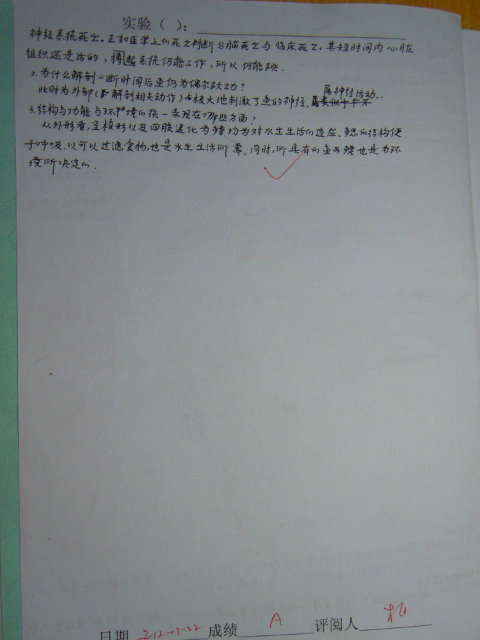 实验（ ）：
神经系统死亡，正如医学上的死亡判断分脑死亡与临床死亡，其短时间内心脏
组织还是活的，搏起系统仍能工作，所以仍能跳.
2.为什么解剖一断时间后鱼仍为偶尔跃动？
属神经活动.
此时为外部(解剖相关动作)极大地刺激了鱼的神经,
3.结构与功能与环境的统一表现在哪些方面？
从外形看，呈梭形以及四肢退化为鳍均为对水生生活的适应，鳃的结构便
于呼吸，以可以过滤食物，也是水生生活所需，同时，所具有的鱼鳔也是为环
境所决定的.
日期 成绩 A 评阅人